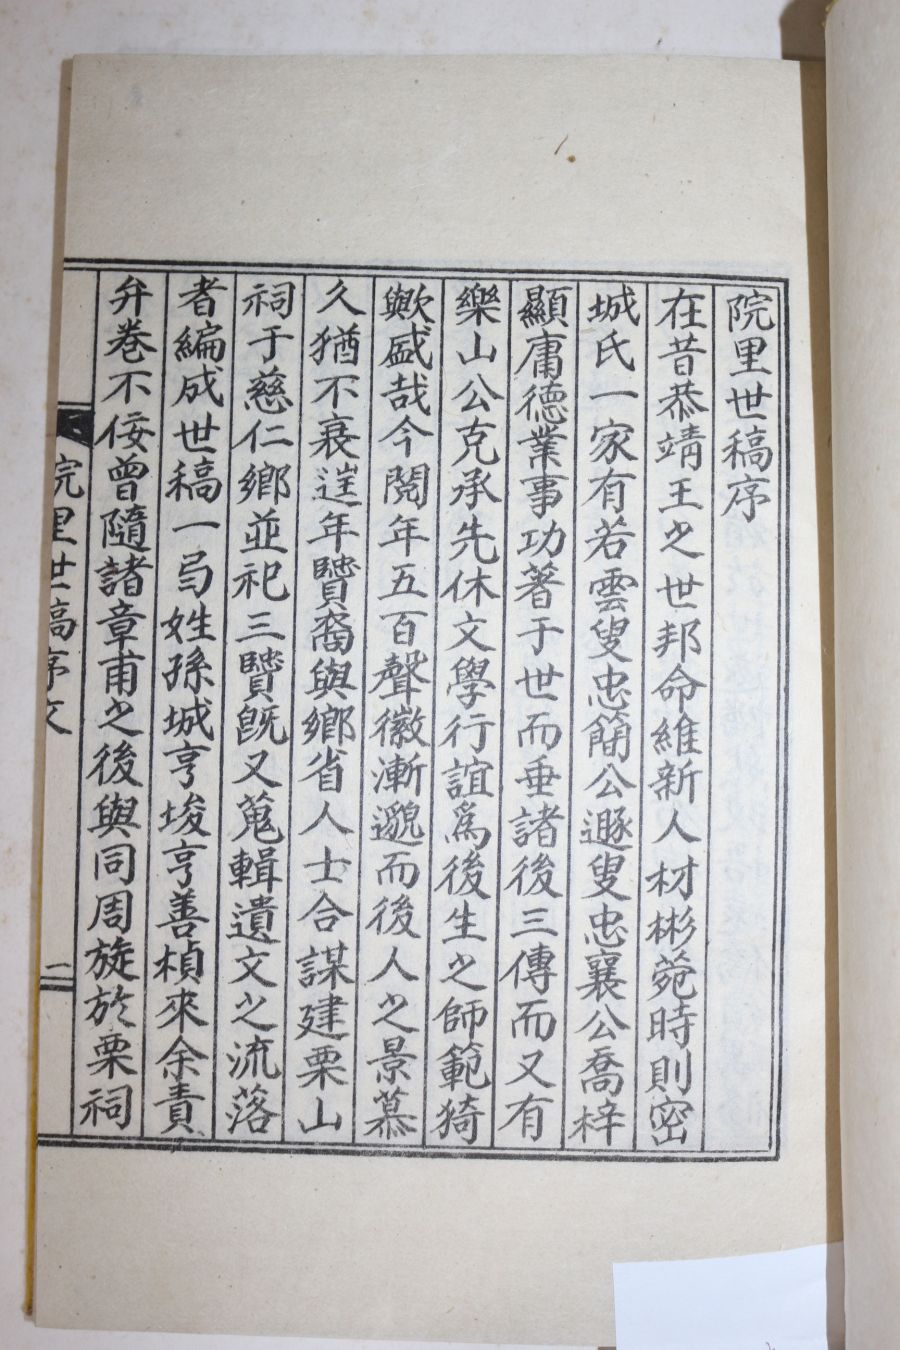 院里世稿序
在昔恭靖王之世邦命維新人材彬菀時則密
城氏一家有若雲叟忠簡公遯叟忠襄公喬梓
顯庸德業事功著于世而垂諸後三傳而又有
樂山公克承先休文學行誼爲後生之師範猗
歟盛哉今閱年五百聲徽漸邈而後人之景慕
久猶不衰迬年贒裔與鄉省人士合謀建栗山
祠于慈仁鄉並祀三贒旣又蒐輯遺文之流落
者編成世稿一弓姓孫城亨埈亨善楨來余責
弁卷不佞曾隨諸章甫之後與同周旋於栗祠
院里世稿序文
二